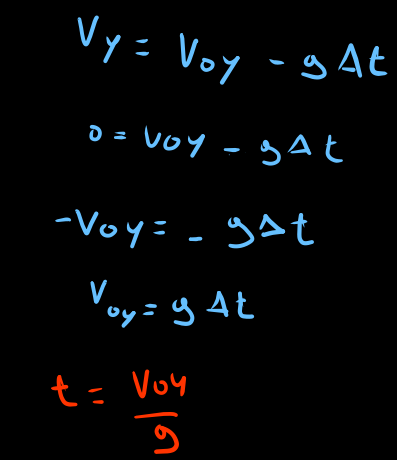 Vy = Voy - gΔt
0 = Voy - gΔt
-Voy = - gΔt
Voy = gΔt
t = Voy/g